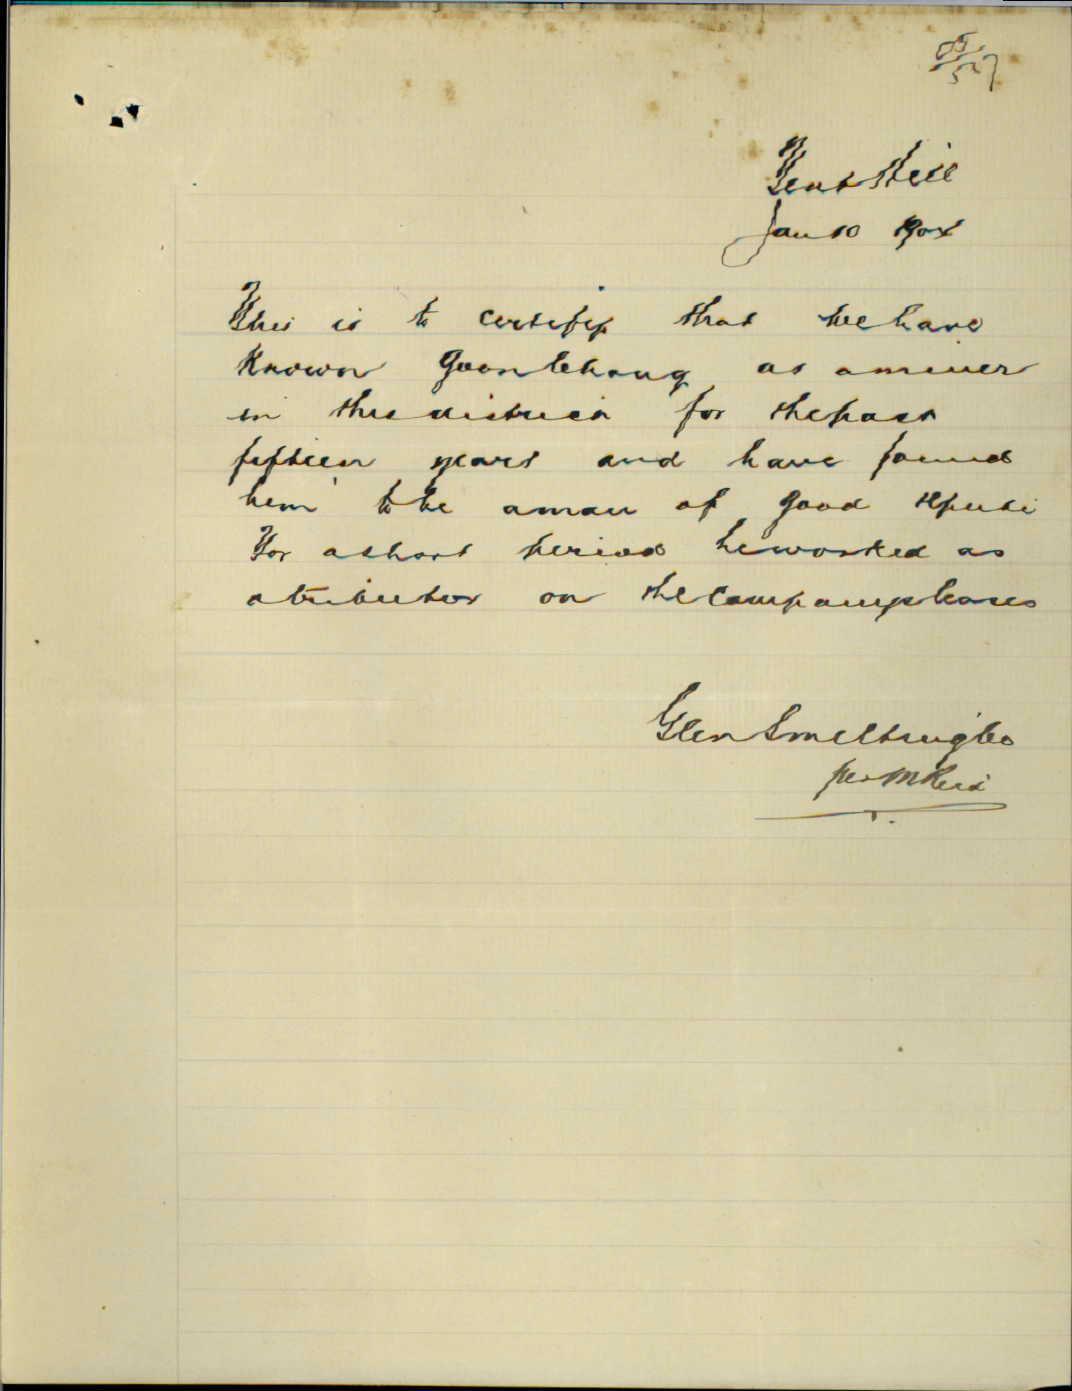 Tent Hill
Jan 10 1904
This is to certify that we have
Known Goon Chong as a miner
in this district for the past
fifteen years and have found
him to be a man of good repute
For a short period he worked as
a tributer on the Company leases
Glen Smelting Co
per M Reid